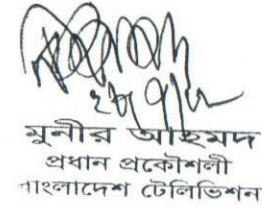 মুনীর আহমদ
প্রধান প্রকৌশলী
বাংলাদেশ টেলিভিশন